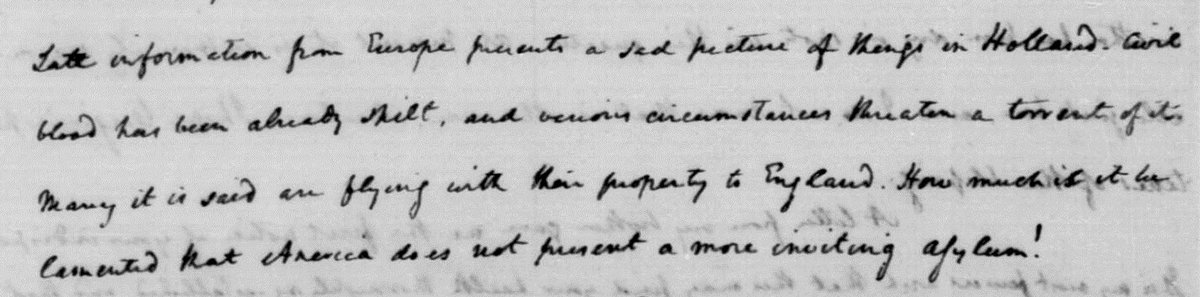 Late information from Europe presents a sad picture of things in Holland. Civil
blood has been already spilt, and various circumstances threaten a torrent of it.
Many it is said are flying with their property to England. How much is it to be
lamented that America does not present a more inviting asylum!